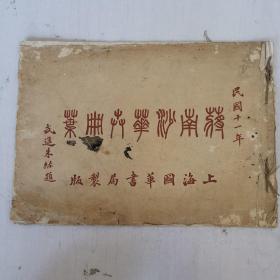 民國十一年
蔣南沙華卉冊葉
武進朱
題
上海國華書局製版